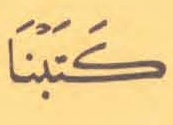 كَتَبْنَا